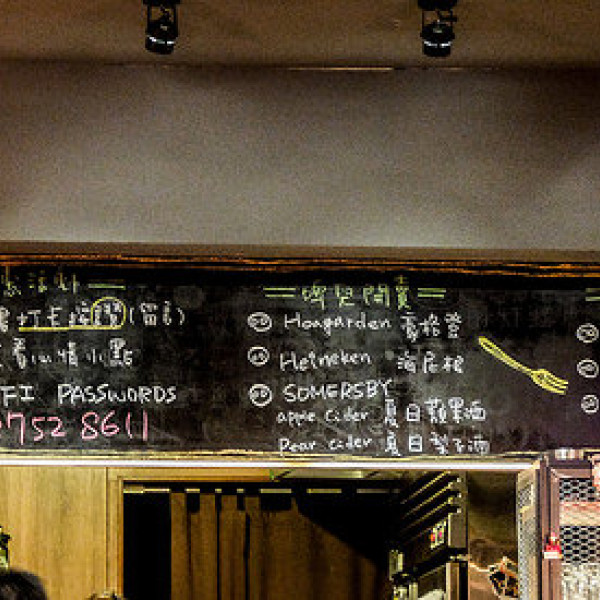 打卡按讚(留言)
看心情小點
FI PASSWORDS
752 8611
啤兒開賣
Hoagarden 豪格登
Heineken 海尼根
SOMERSBY
apple Cider 夏日蘋果酒
Pear Cider 夏日梨子酒